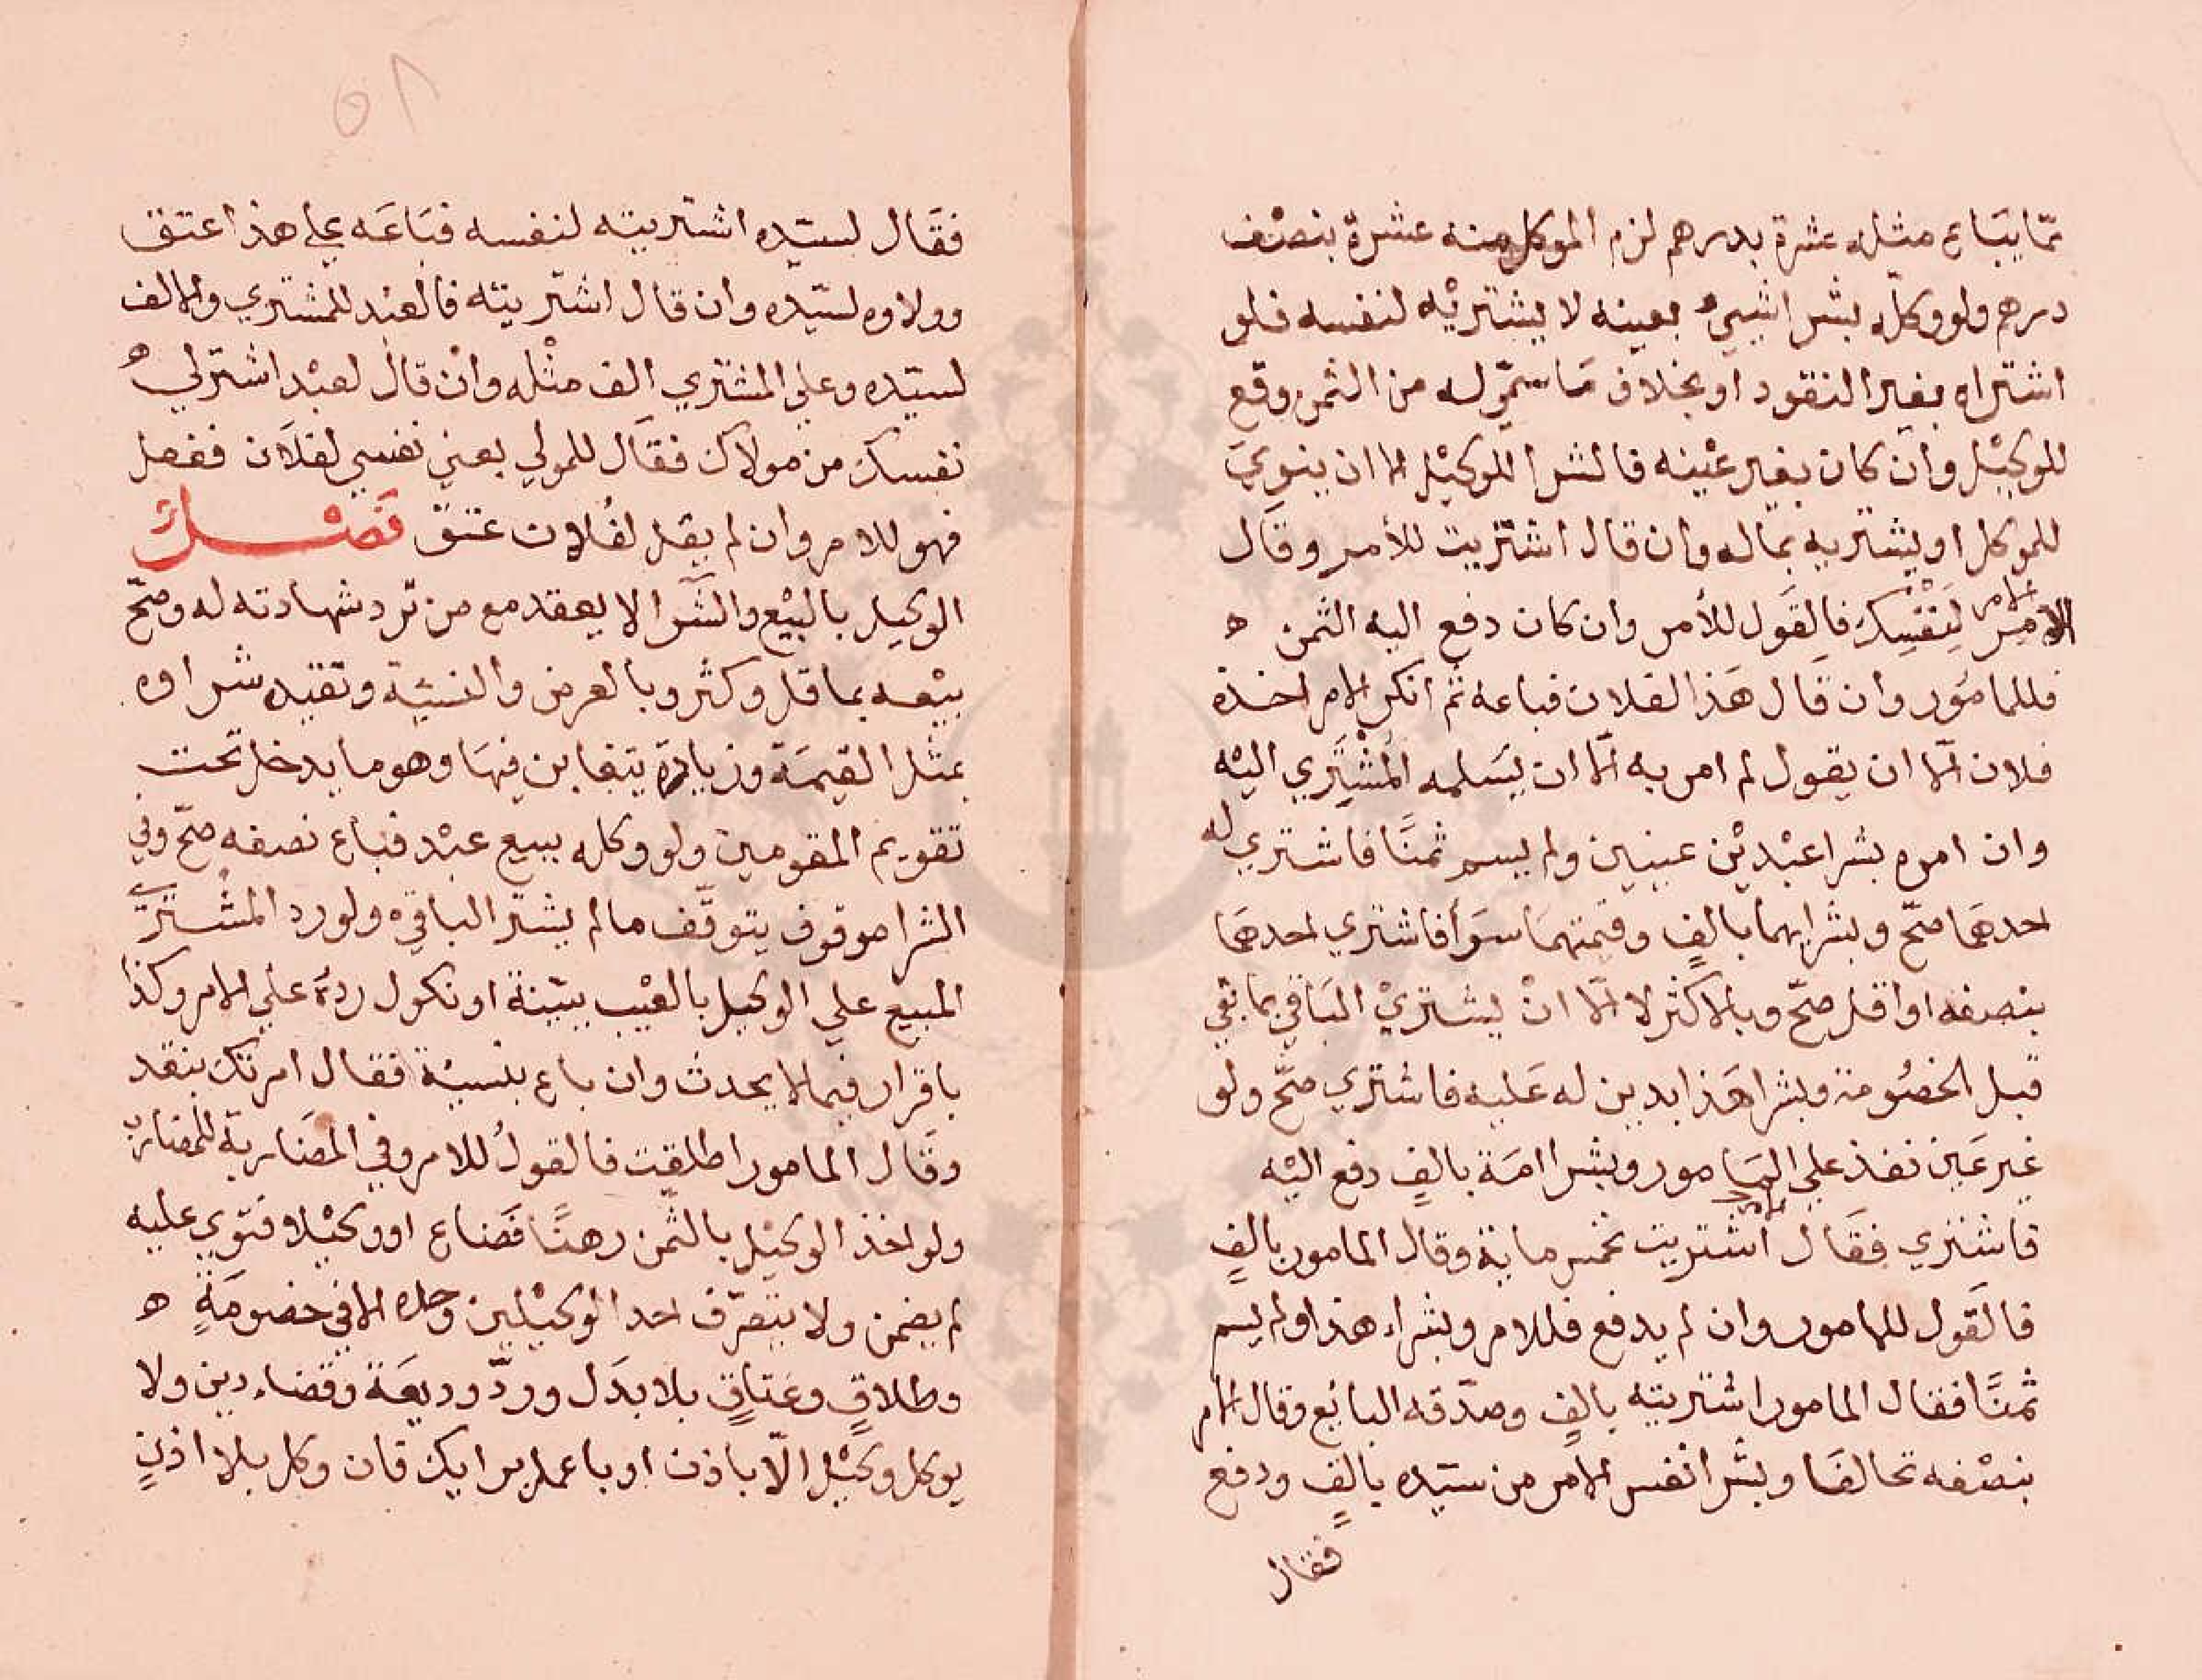 ممّا يبَاع مثله عشرة بدرهم لزم الموكل منه عشرة بنصْف
درهم ولو وكلّه بشرا شيءٍ بعينه لا يشتريْه لنفسه فلو
اشتراه بغير النقود او بخلاف مَا سمّى له من الثمن وقع
للوكيْل وان كان بغير عيْنه فالشرا للوكيْل الا ان ينويَ
للموكل او يشتريه بماله وان قال اشتريت للأمر وقال
الامر لِنَفْسِكَ فالقَول للأمر وان كان دفع اليه الثمن ه
فللمامُور وان قَال هَذا لفلان فباعه ثم انكر الامر اخذهْ
فلان الّا ان يقول لم امر به الّا ان يسَلمه المُشْتَري اليْه
وان امره بشرا عبْديْن عينين ولم يسم ثمنًا فاشتري له
احدهمَا صحّ وبشرايهما بالفٍ وقيمتهمَا سوَأ فاشتري احدهمَا
بنصفه او اقل صحّ وبالاكثر لا الّا انْ يشتريْ البَاقي بما بقي
قبل الخصُومة وبشرا هَذا بدين له عَليه فاشتري صحّ ولو
غير عَين نفذ علي المَامور وبشرا امَة بالفٍ دفع اليْه
فاشتري فقَال اشتريت بخمس ماية وقال المامور بالفٍ
فالقَول للمامور وان لم يدفع فللامر وبشراء هذا ولم يسم
ثمنًا فقال المامور اشتريته بالفٍ وصدّقه البائع وقال الامر
بنصْفه تحالفَا وبشرا نفس الامر من سيّده بالفٍ ودفع
فقال
٥٦
فقَال لسيّده اشتريته لنفسه فبَاعَه علي هذا عتق
وولاوه لسيّده وان قال اشتريته فالعبْد للمشتري والالف
لسيّده وعلي المشتري الف مثْله وان قال لعبْد اشتر لي ه
نفسك من مولاك فقال للمولي بعني نفسي لفلَان ففعل
فهو للامر وان لم يقل لفُلان عتقَ فَصْــلٌ
الوكيل بالبيْع والشّرا لا يعقد مع من ترد شهادته له وصحّ
بيْعه بما قل وكثر وبالعرض والنسيّة وتقيّد شراوه
بمثل القيمَة وزيادة يتغابن فيهَا وهو ما يدخل تحت
تقويم المقومين ولو وكله ببيع عبْد فباع نصفه صحّ وفي
الشرا موقوف يتوقّف ما لم يشتر الباقي ولو رد المشتريْ
المبيع علي الوكيل بالعيْب ببيّنة او نكول ردهُ علي الامر وكذا
باقرار فيما لا يحدث وان باع بنسيئة فقال امرتك بنقد
وقَال المامور اطلقت فالقولُ للامر وفي المضَاربة للمضارب
ولو اخذ الوكيْل بالثّمن رهنًا فَضاع او وكيْلا فتوي عليه
لم يضمن ولا يتصرّف احد الوكيْلين وحده الا في خصومَةٍ ه
وطلاقٍ وعَتاقٍ بلا بدَل وردّ وديعَة وقضاء دين ولا
يوكل وكيْل الّا باذن او باعمل برايك فان وكل بلا اذنٍ